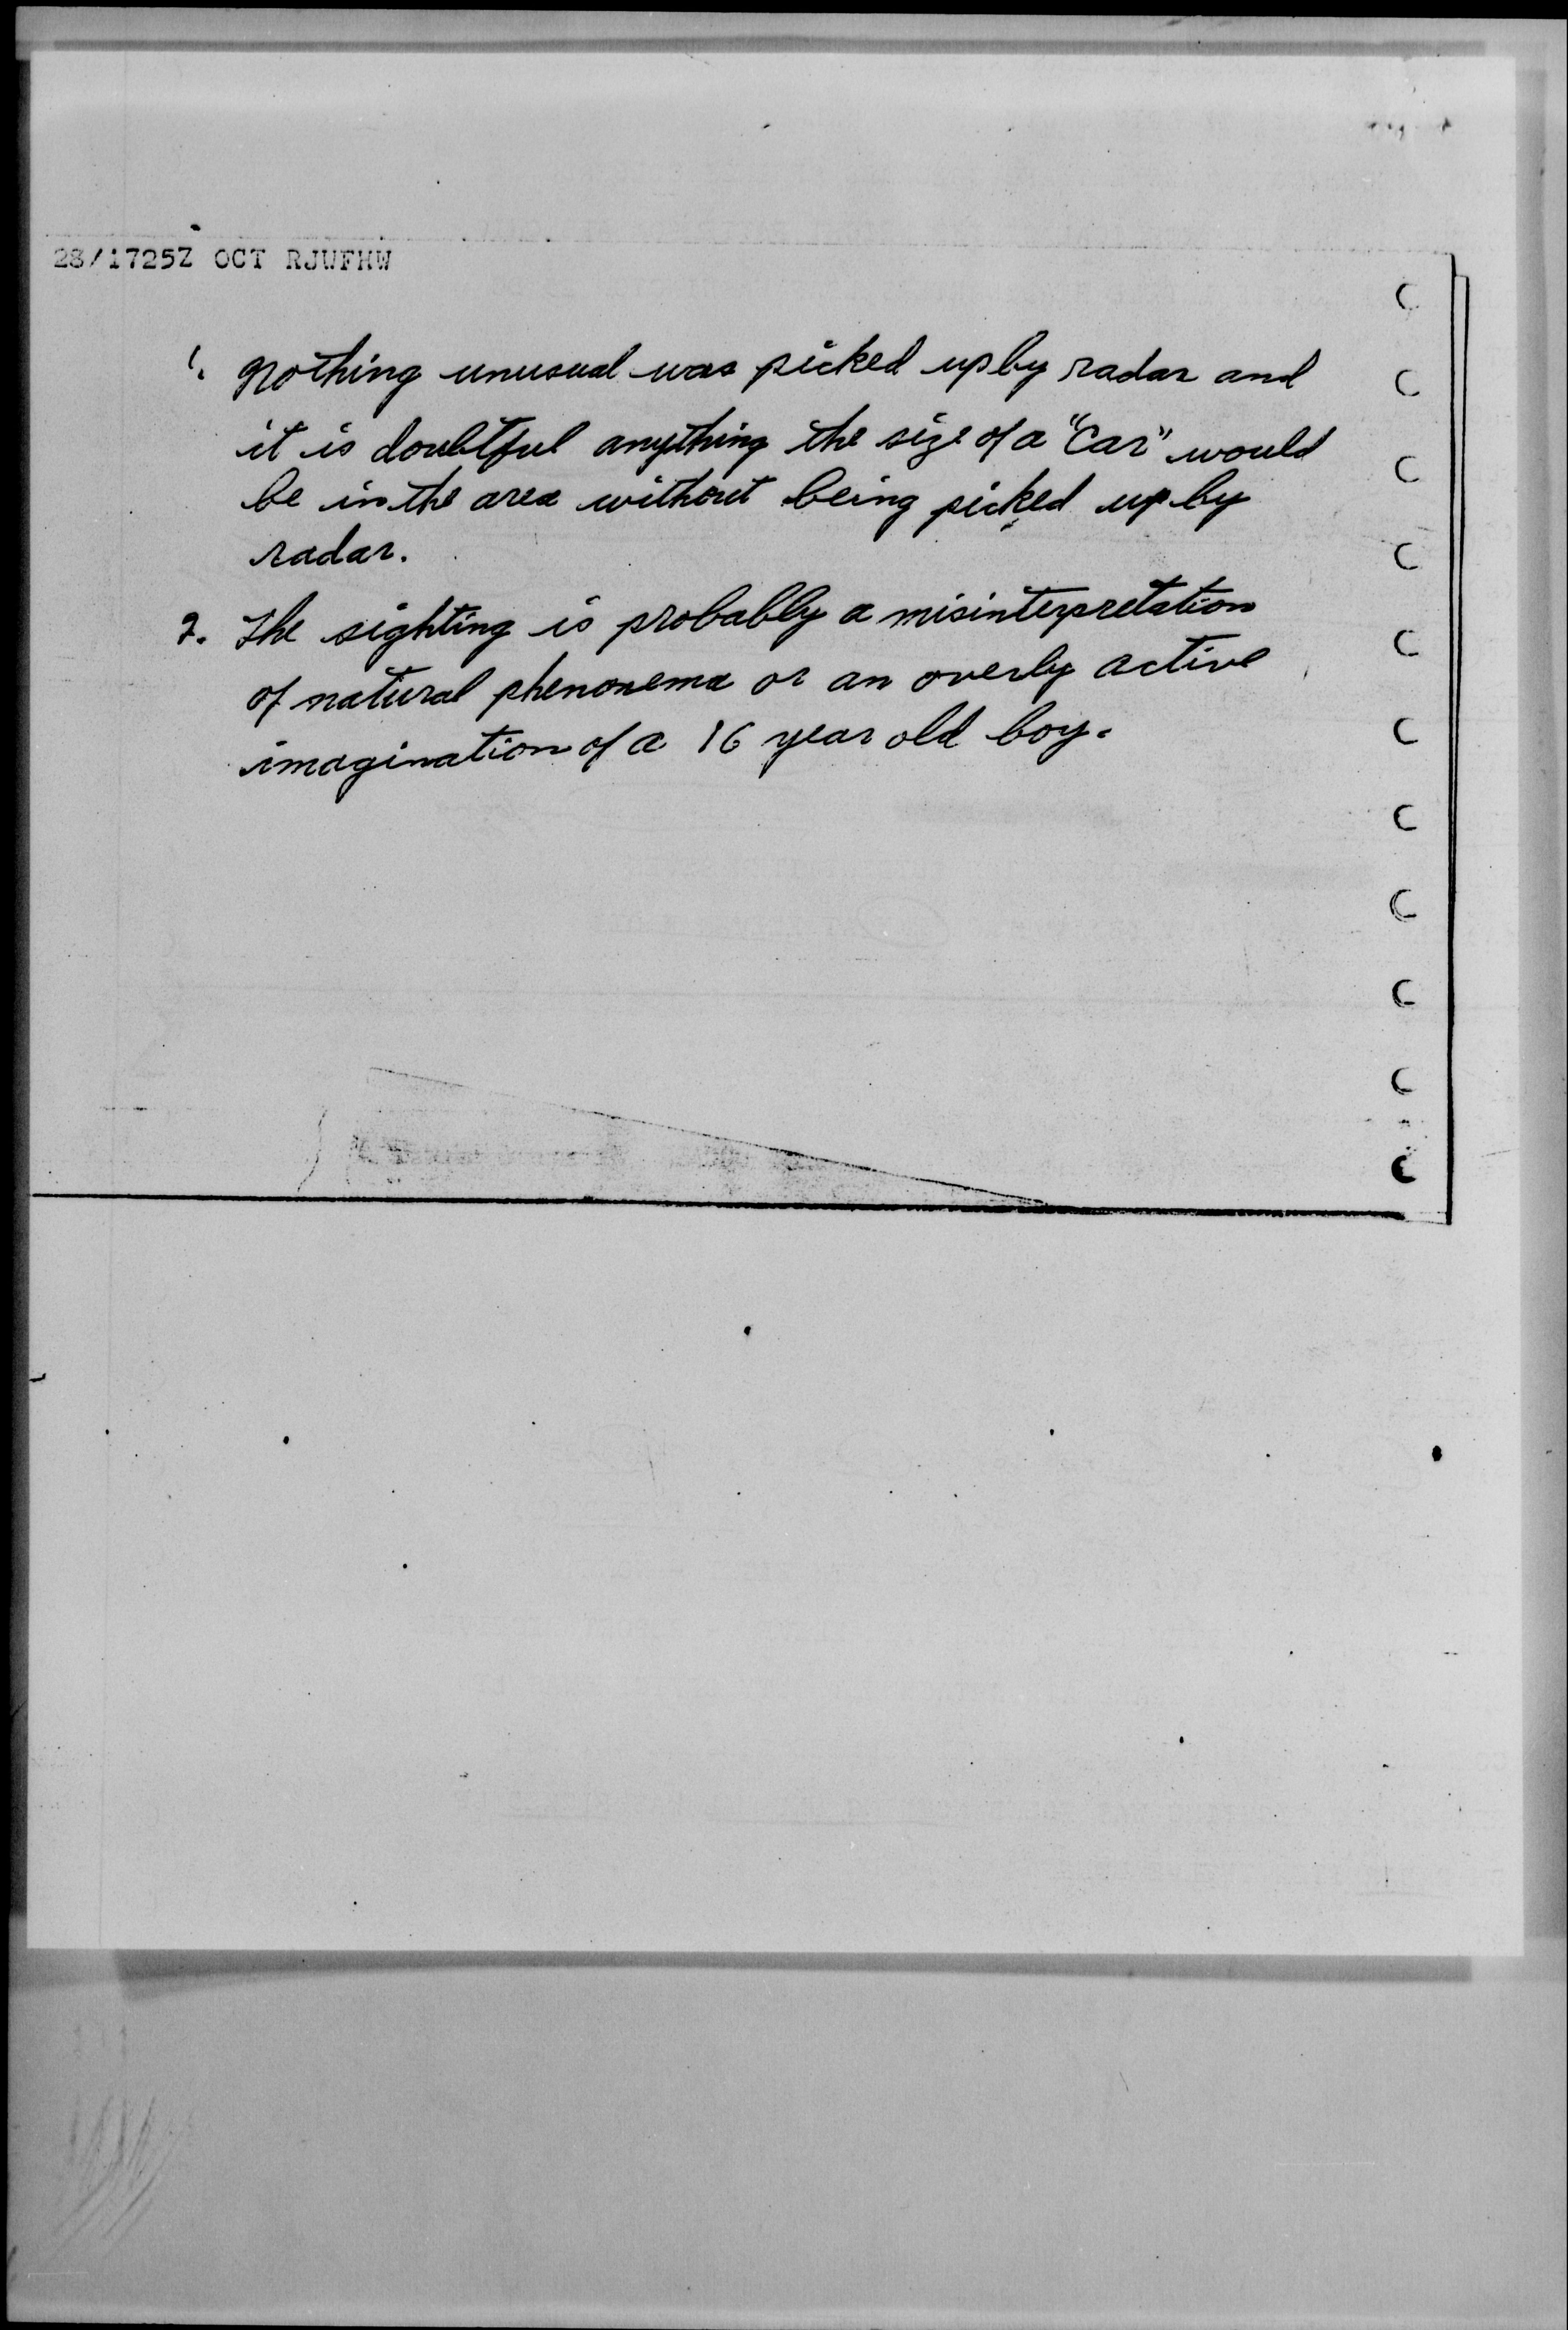 28/1725Z OCT RJWFHW
1. Nothing unusual was picked up by radar and
it is doubtful anything the size of a "Car" would
be in the area without being picked up by
radar.
2. The sighting is probably a misinterpretation
of natural phenonema or an overly active
imagination of a 16 year old boy.